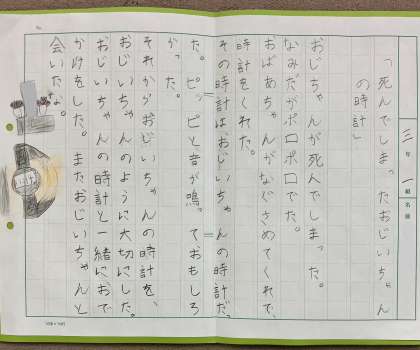 「死んでしまったおじいちゃん
の時計」
三年一組名前
おじちゃんが死んでしまった。
なみだがポロポロでた。
おばあちゃんがなぐさめてくれて、
時計をくれた。
その時計はおじいちゃんの時計だっ
た。ピッピと音が鳴っておもしろ
かった。
それからおじいちゃんの時計を、
おじいちゃんのように大切にした。
おじいちゃんの時計と一緒におで
かけをした。またおじいちゃんと
会いたな。